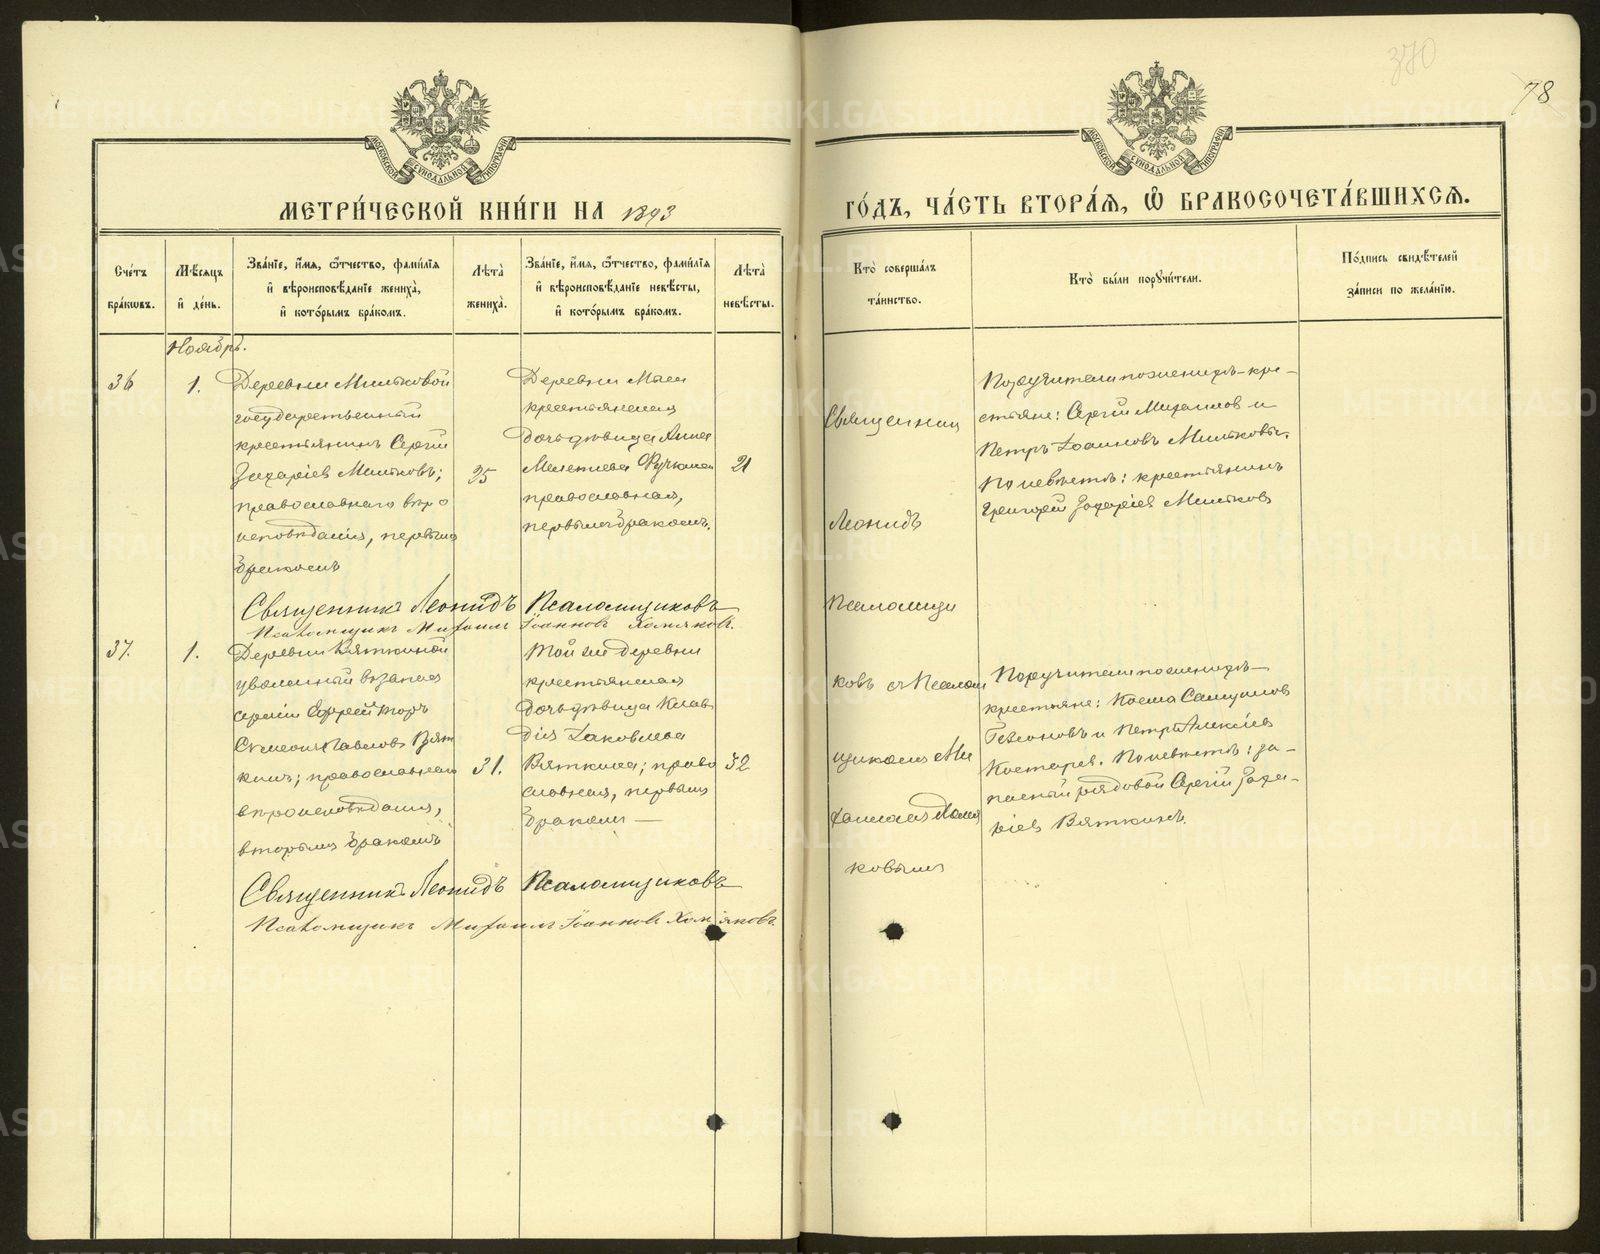 370
78
МОСКОВСКОЙ СѴНОДАЛЬНОЙ ТИПОГРАФІИ
МОСКОВСКОЙ СѴНОДАЛЬНОЙ ТИПОГРАФІИ
МЕТРИ́ЧЕСКОЙ КНИ́ГИ НА 1893
ГО́ДЪ, ЧА́СТЬ ВТОРА́Ѧ, Ѽ БРАКОСОЧЕТА́ВШИХСѦ.
Сче́тъ
бра́кѡвъ.
Мѣ́сѧцъ
и҆ де́нь.
Зва́нїе, и҆́мѧ, ѻ҆́тчество, фами́лїѧ
и҆ вѣроисповѣ́данїе жениха̀,
и҆ кото́рымъ бра́комъ.
Лѣ́та
жениха̀.
Зва́нїе, и҆́мѧ, ѻ҆́тчество, фами́лїѧ
и҆ вѣроисповѣ́данїе невѣ́сты,
и҆ кото́рымъ бра́комъ.
Лѣ́та
невѣ́сты.
Кто̀ соверша́лъ
та́инство.
Кто̀ бы́ли порꙋчи́тели.
По́дпись свидѣ́телей
за́писи по жела́нїю.
Ноябрь.
36
1.
Деревни Мильковой
государственный
крестьянинъ Сергій
Захаріев Мильковъ;
православнаго вѣро
исповѣданія, первымъ
бракомъ
25
Деревни
крестьянская
дочь дѣвица Анна
Мелетиева
православная,
первымъ бракомъ.
21
Священник
Леонидъ
Псаломщи
Поручители по женихѣ – кре-
стьяне: Сергій Михаилов и
Петръ Іоанновъ Мильковы.
По невѣстѣ: крестьянинъ
Григорій Захаріев Мильков
Священникъ Леонидъ Псаломщиковъ
Псаломщикъ Михаилъ Іоанновъ Хомяковъ.
37.
1.
Деревни Вяткиной
уволенный в запас
арміи
Симеонъ Павлов Вят
кинъ; православнаго
вѣроисповѣданія,
вторымъ бракомъ
31.
Той же деревни
крестьянская
дочь дѣвица Клав
дія Іаковлева
Вяткина; право
славная, первымъ
бракомъ —
32
ковъ съ Псалом
щикомъ Ми
хаиломъ Хомя
ковымъ
Поручители по женихѣ –
крестьяне: Косма Самуилов
и Петръ Алексіев
Костарев. По невѣстѣ: за-
пасный рядовой Сергій Заха-
ріев Вяткинъ.
Священникъ Леонидъ Псаломщиковъ
Псаломщикъ Михаилъ Іоанновъ Хомяковъ.
METRIKI.GASO-URAL.RU